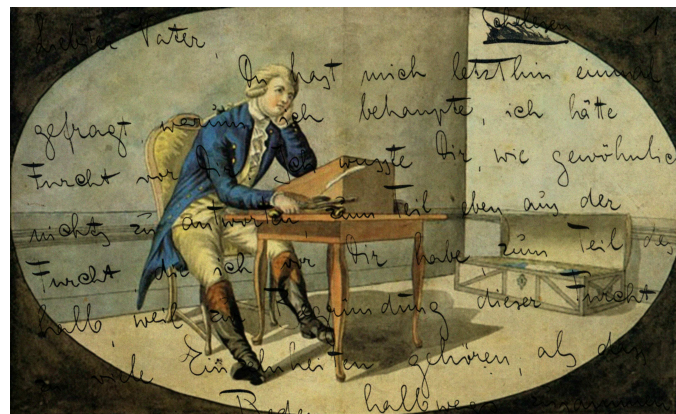 Schelesen 1
Liebster Vater,
Du hast mich letzthin einmal
gefragt warum ich behaupte, ich hätte
Furcht vor Dir. Ich wusste Dir, wie gewöhnlic
nichts zu antworten, zum Teil eben aus der
Furcht, die ich vor Dir habe, zum Teil des
halb, weil zur Begründung dieser Furcht
viele Einzelnheiten gehören, als dass
Reden halbwegs